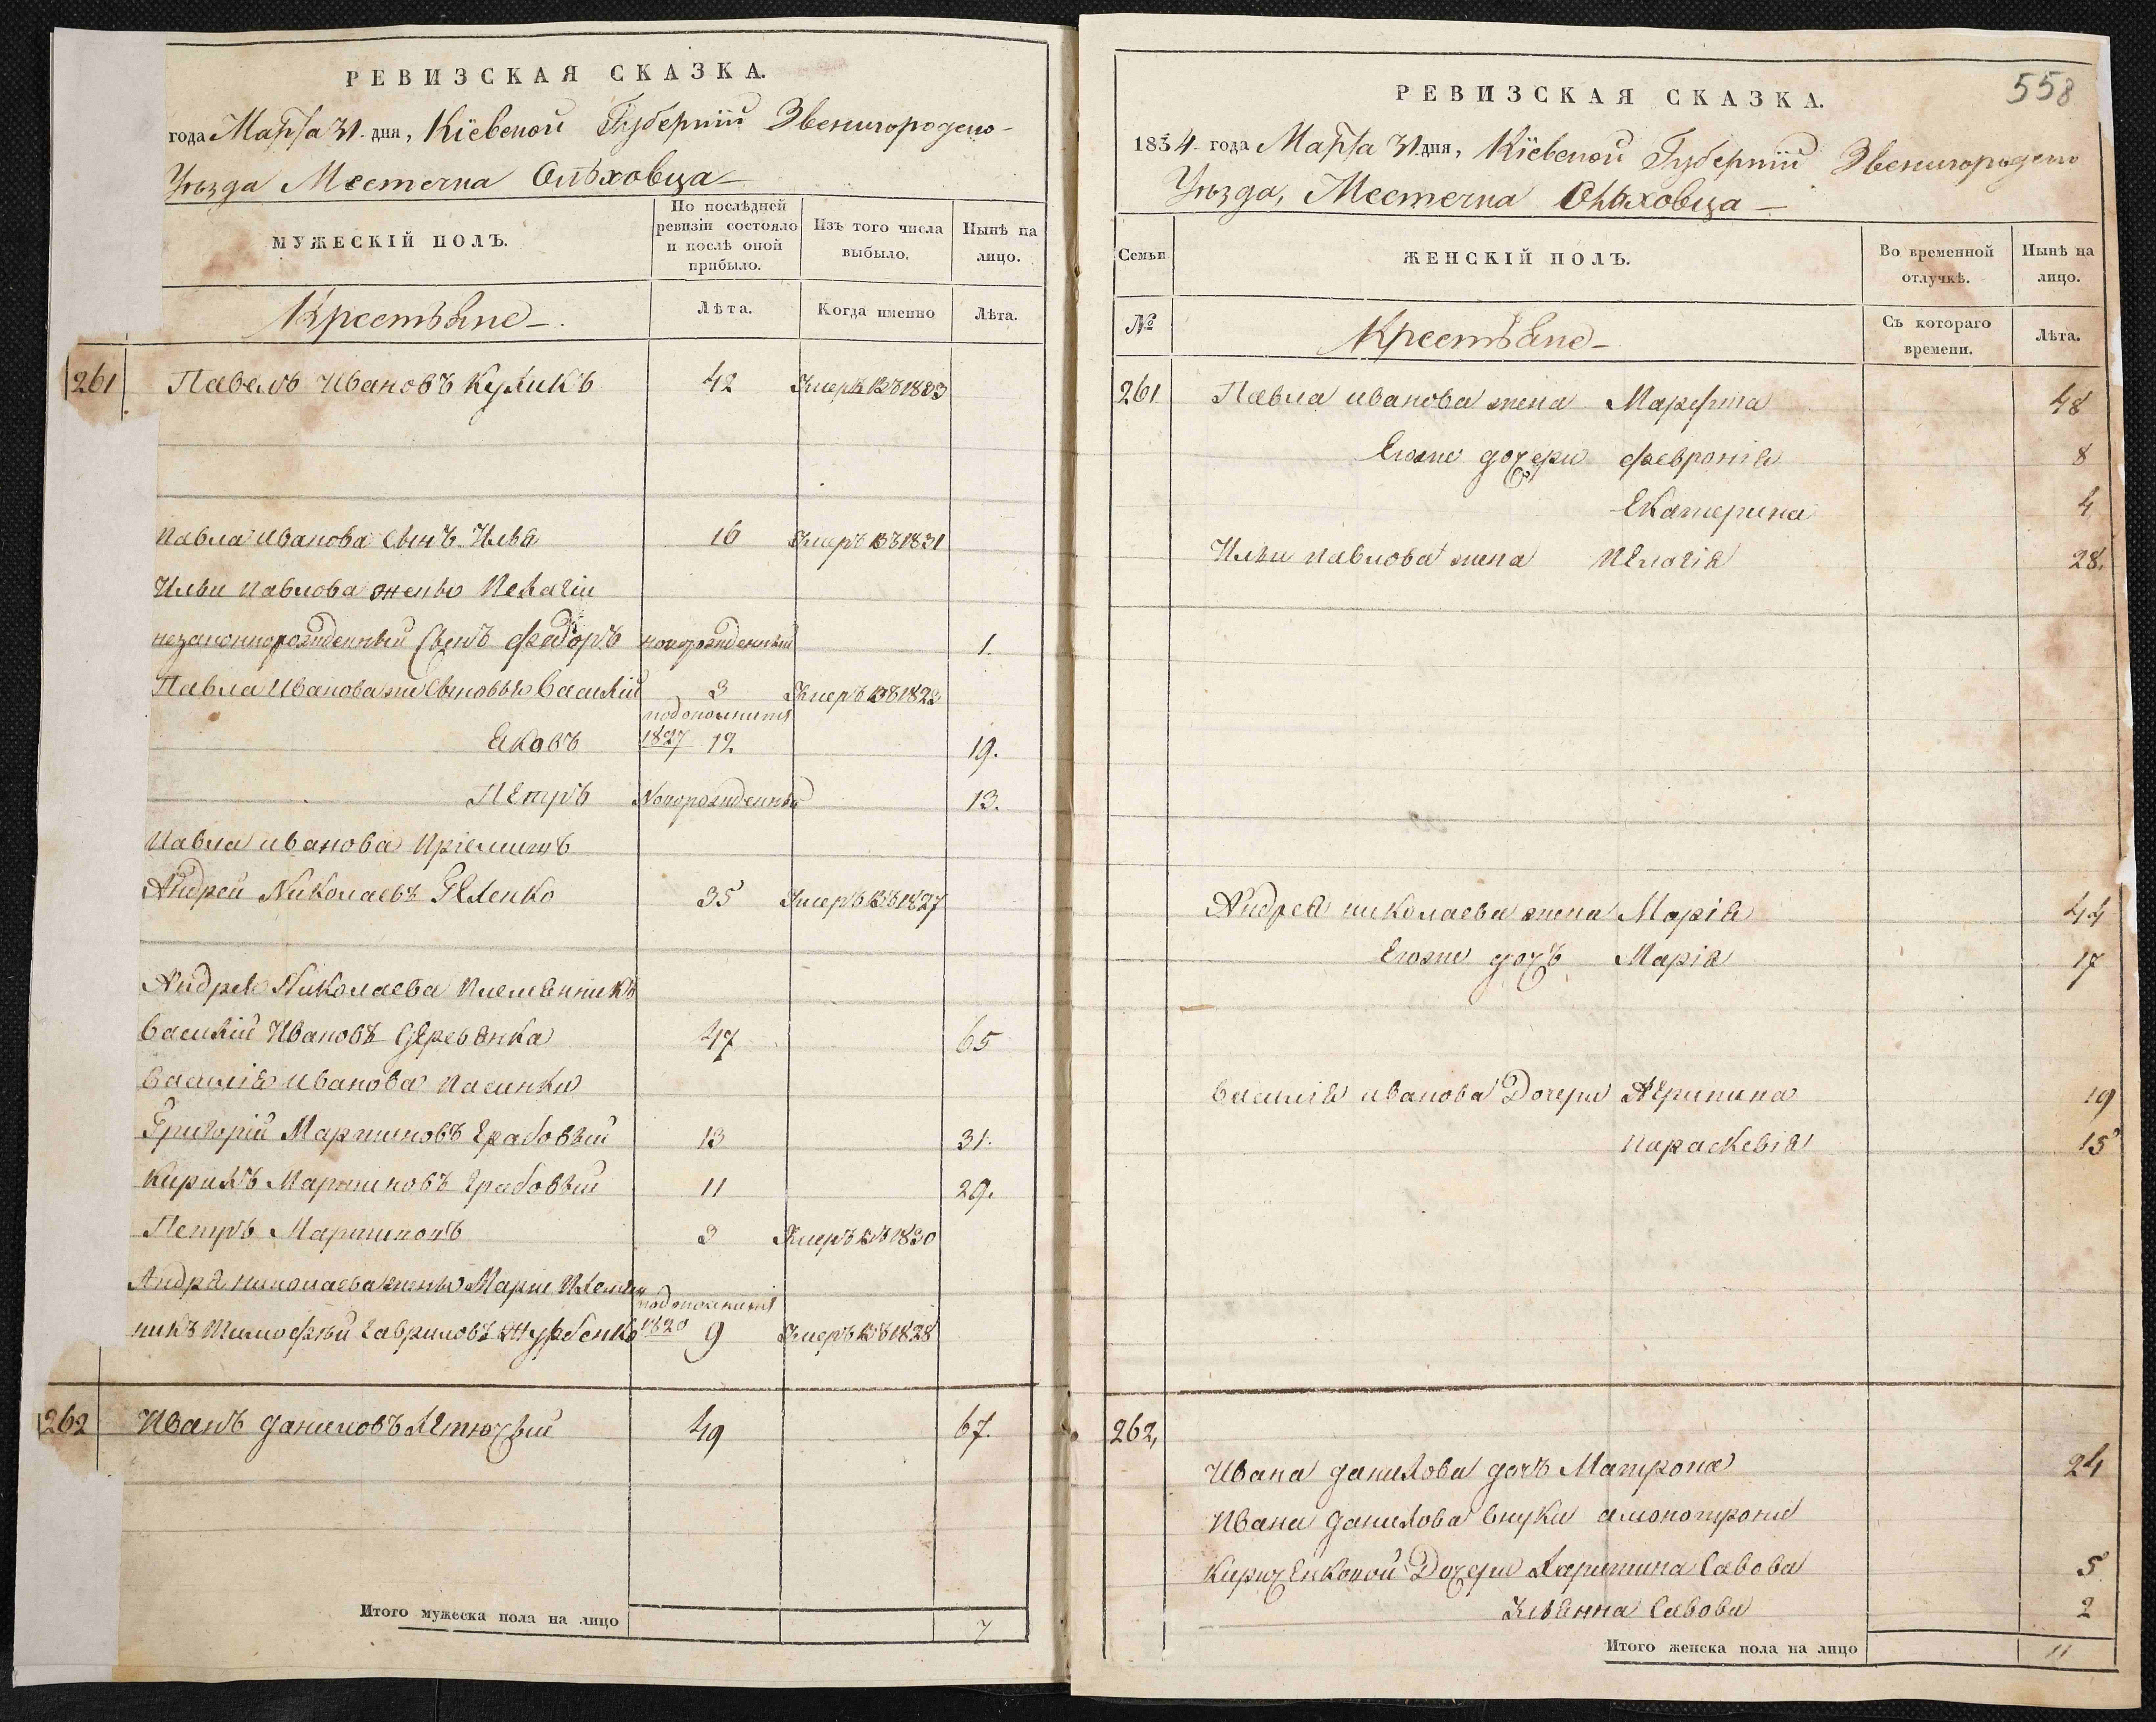 РЕВИЗСКАЯ СКАЗКА.
года Марта 31 дня, Кіевской Губерніи Звенигородско-
Уѣзда Местечка Ольховца
МУЖЕСКІЙ ПОЛЪ.
По послѣдней ревизіи состояло и послѣ оной прибыло.
Изъ того числа выбыло.
Нынѣ на лицо.
Крестьяне
Лѣта.
Когда именно
Лѣта.
261 Павелъ Ивановъ Куликъ 42 Умеръ въ 1833
Павла Иванова сынъ Илья 16 Умеръ въ 1831
Ильи Павлова жены Пелагіи
незаконнорожденный сынъ Федоръ новорожденный 1.
Павла Иванова же сыновья Василій 3 Умеръ въ 1828
Яковъ 1827 12. 19.
Петръ Новорожденный 13.
Павла Иванова Пріемышъ
Андрей Николаевъ Геленко 35 Умеръ въ 1827
Андрея Николаева Племянникъ
Василій Ивановъ 47 65
Василія Иванова Пасынки
Григорій Мартиновъ Грабовый 13 31.
Кирилъ Мартиновъ Грабовый 11 29.
Петръ Мартиновъ 3 Умеръ въ 1830
Андрея Николаева жены Маріи Племян
никъ Тимофѣй Гавриловъ 1820 9 Умеръ въ 1828
262 Иванъ Даниловъ Летючый 49 67.
Итого мужеска пола на лицо 7
558
РЕВИЗСКАЯ СКАЗКА.
1834 года Марта 31 дня, Кіевской Губерніи Звенигородско
Уѣзда, Местечка Ольховца
Семьи
ЖЕНСКІЙ ПОЛЪ.
Во временной отлучкѣ.
Нынѣ на лицо.
№
Крестьяне
Съ котораго времени.
Лѣта.
261 Павла Иванова жена Марфта 48
Егоже дочери Февронія 8
Екатерина 4
Ильи Павлова жена Пелагія 28.
Андрея Николаева жена Марія 44
Егоже дочь Марія 17
Василія Иванова Дочери Агрипина 19
Параскевія 15
262,
Ивана Данилова дочь Матрона 24
Ивана Данилова внуки
Кириченковой Дочери Харитина Савова 5
Улянна Савова 2
Итого женска пола на лицо 11